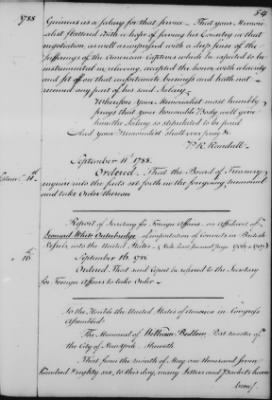 1788
54
Guineas as a Salary for that service. That your Memorialist flattered with a hope of serving his Country in that
negotiation, as well as impressed with a deep sense of the
sufferings of the American Captives which he expected to be
instrumental in relieving, accepted the honor with alacrity
and set off on that unfortunate business and hath not
received any part of his said Salary.
Wherefore your Memorialist most humbly
prays that your honorable Body will give
him the Salary so stipulated to be paid
And your Memorialist shall ever pray &c
P. R. Randall
September 11th 1788.
Ordered, That the Board of Treasury
enquire into the facts set forth in the foregoing memorial
and take Order thereon
Report of Secretary for Foreign Affairs, on Affidavit of
Leonard White Outerbridge, of importation of Convicts in British
Vessels into the United States
16
September 16. 1788
Ordered That said Report be referred to the Secretary
for Foreign Affairs to take Order
To the Honble the United States of America in Congress
Assembled:
The Memorial of William Bedlow Post master of
the City of New York Sheweth
That from the month of May one thousand seven
hundred & eighty six, to this day, many Letters and Packets have
been